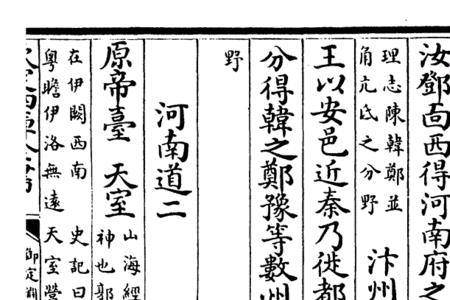 汝鄧靣西得河南府之
理志陳韓鄭並
角亢氐之分野
汴州
王以安邑近秦乃徙都
分得韓之鄭豫等數州
野
河南道二
原帝臺 天室
山海經
神也郭
在伊闕西南 史記曰
粤瞻伊洛無遠天室營
御定淵